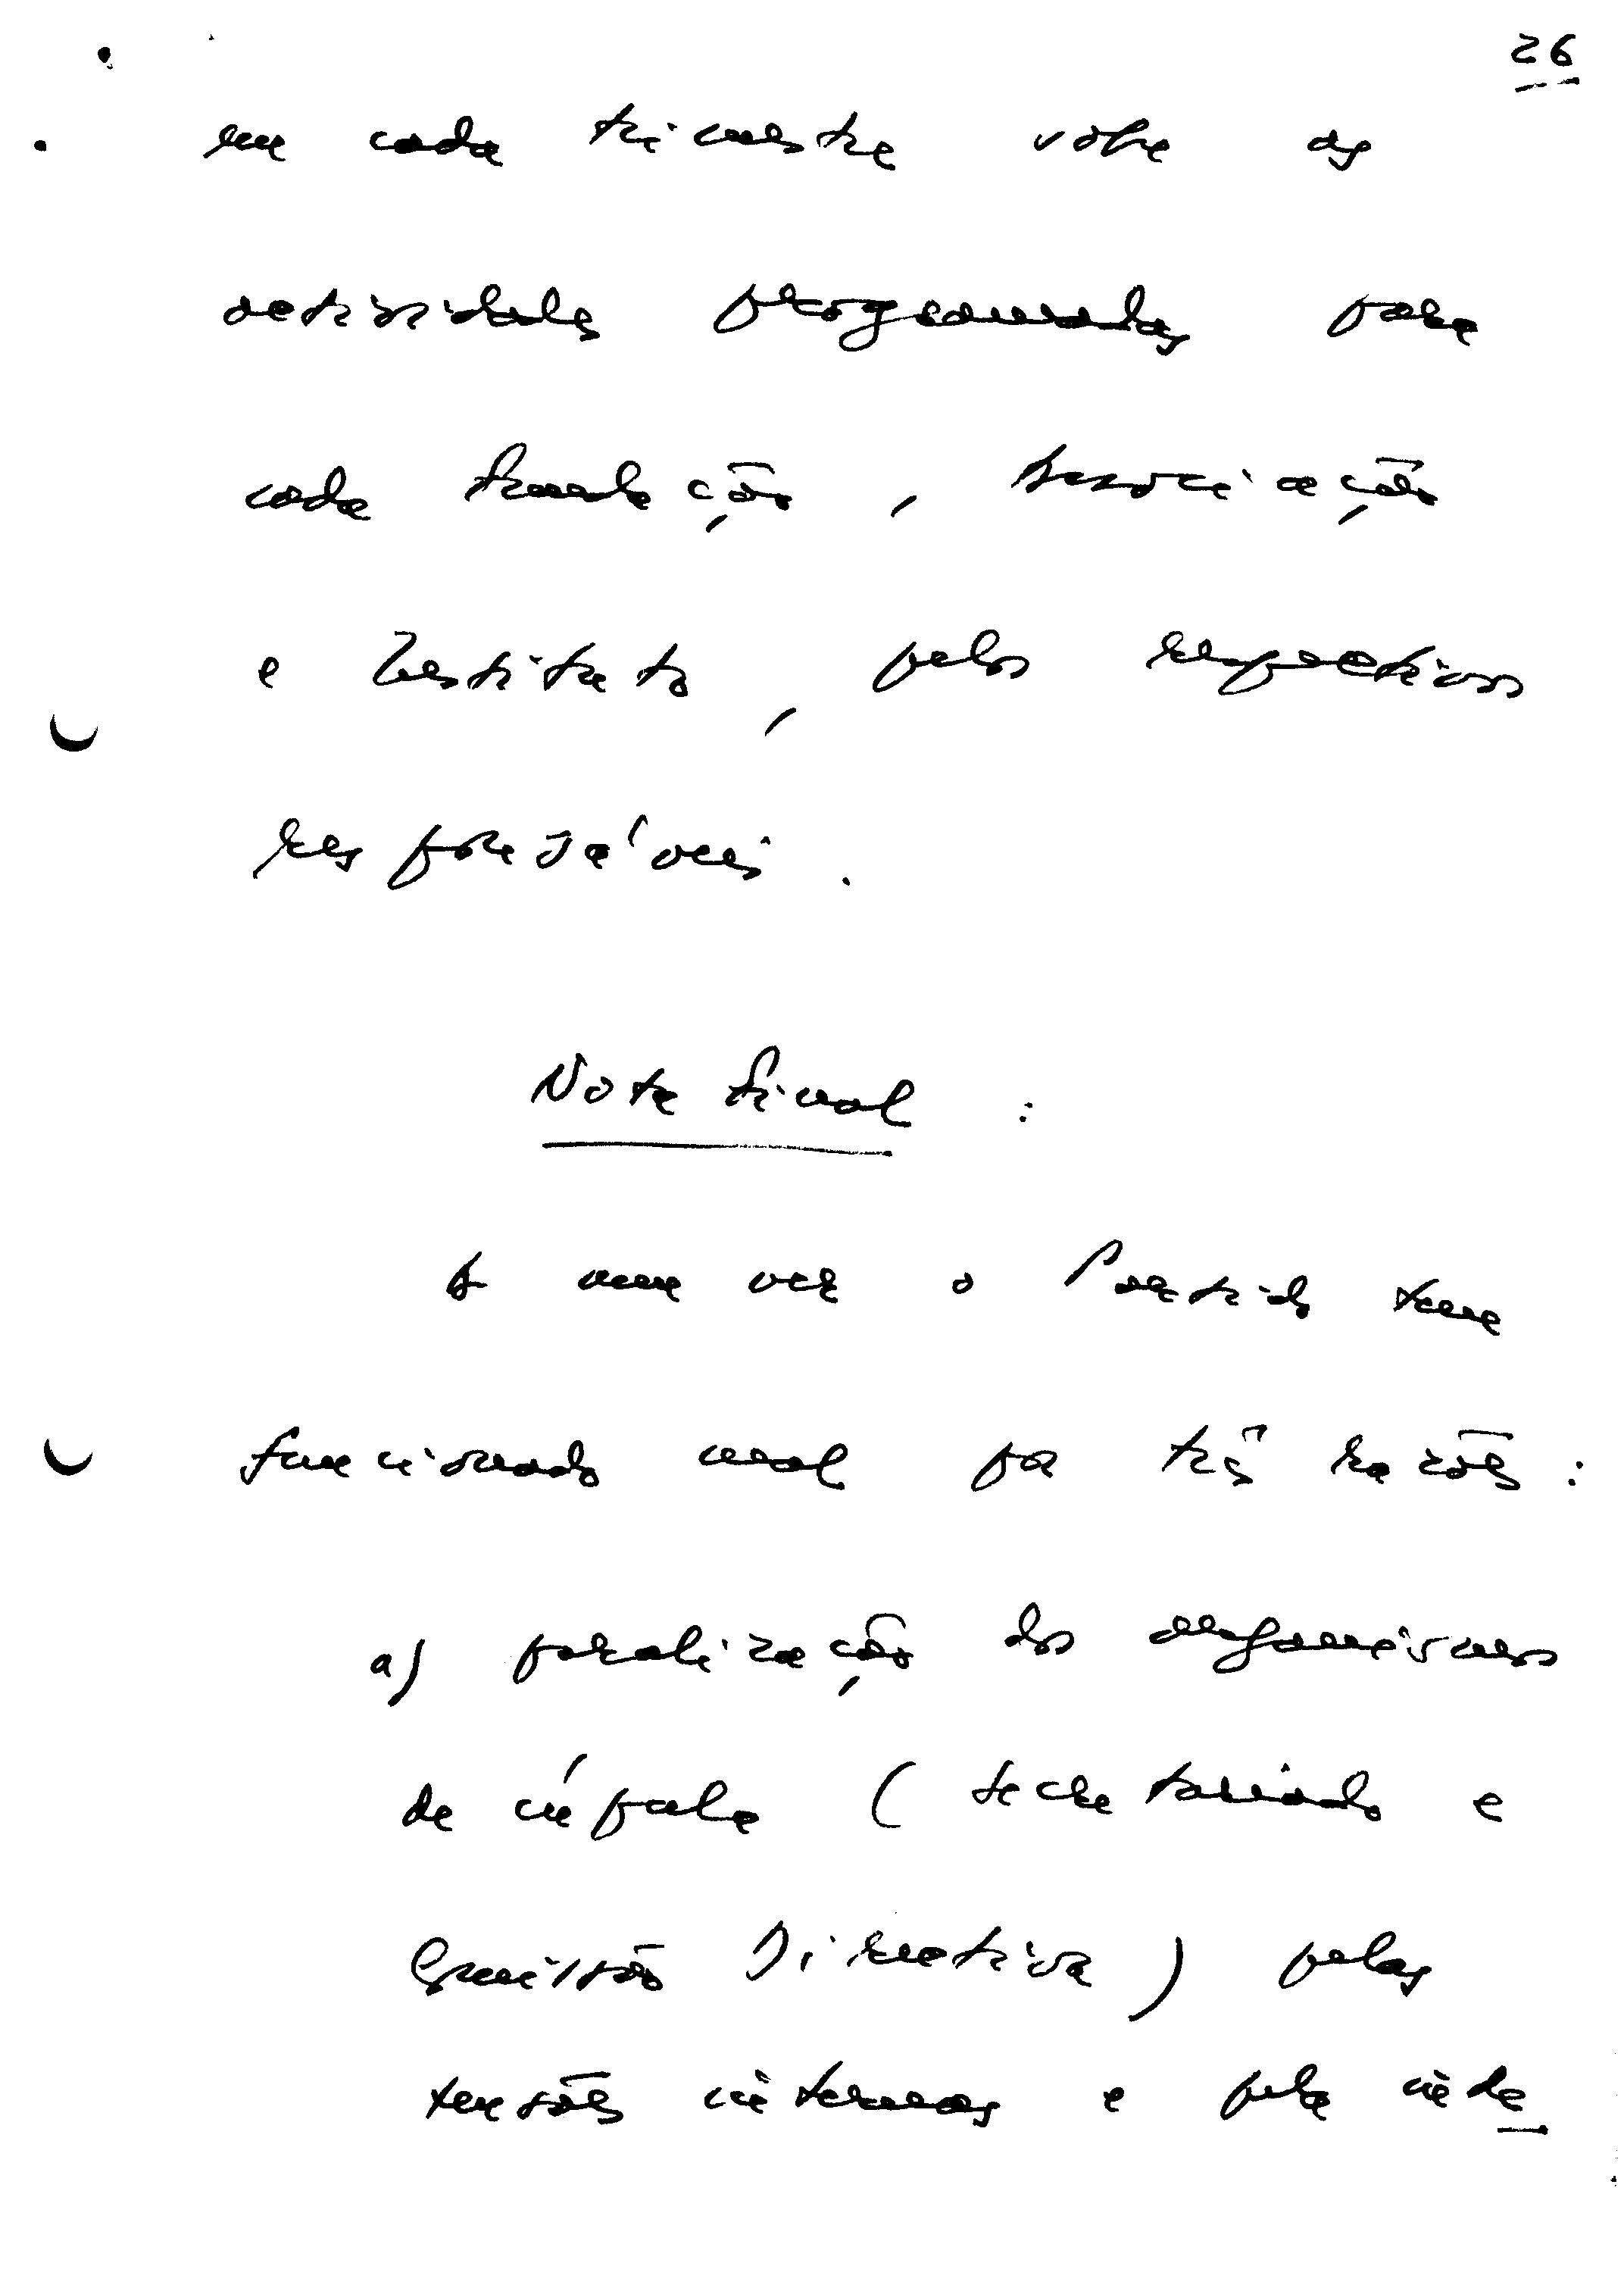 26
em cada trimestre sobre as
actividades programadas para
cada Fundação, Associação
e Instituto, pelos respectivos
responsáveis.
Nota final :
A meu ver o Partido tem
funcionado mal por três razões :
a) paralização dos organismos
de cúpula (Secretariado e
Comissão Directiva) pelas
tensões internas e pela inde